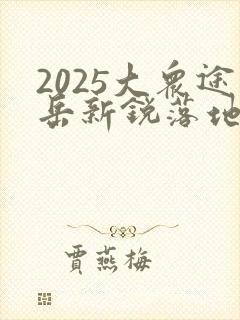 2025大众途
岳新锐落地
贾燕梅